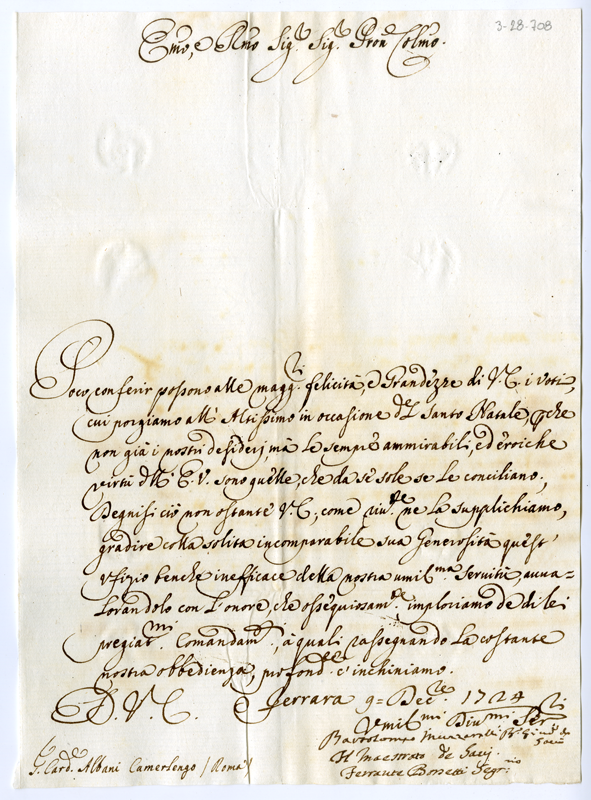 3-28-708
Emo, e Rmo Sig.r Sig.r Pron Colmo.
Poco conferir possono alle magg.ri felicità, e Grandezze di V.E. i voti,
cui porgiamo all' Altissimo in occasione del Santo Natale, che
non già i nostri desiderj, mà le sempre ammirabili, ed eroiche
virtù dell' E.V. sono quelle, che da sè sole se le conciliano.
Degnisi ciò non ostante V.E., come viv.te ne la supplichiamo,
gradire colla solita incomparabile sua Generosità quest'
Ufizio benche inefficace della nostra umil.ma servitù, avva-
lorandolo con l'onore, che ossequiosam.te imploriamo de di lei
pregiat.mi Comandam.ti, à quali rassegnando la costante
nostra obbedienza, profond.te c'inchiniamo.
D. V. E. Ferrara 9= Dec.re 1724
Umil.mi Div.mi Ser.ri
Bartolomeo
Il Maestrato de Savj.
S. Card.le Albani Camerlengo / Roma /
Ferrante Borsetti Segr.rio